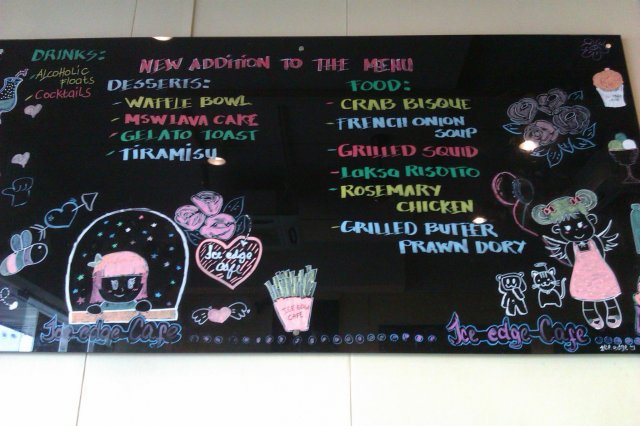 NEW ADDITION TO THE MENU
DRINKS:
- Alcoholic
Floats
- Cocktails
DESSERTS:
- WAFFLE BOWL
- MSW LAVA CAKE
- GELATO TOAST
- TIRAMISU
FOOD:
- CRAB BISQUE
- FRENCH ONION
SOUP
- GRILLED SQUID
- LAKSA RISOTTO
- ROSEMARY
CHICKEN
- GRILLED BUTTER
PRAWN DORY
Ice edge
Cafe
ICE EDGE
CAFE
Ice edge Cafe
Ice edge Cafe